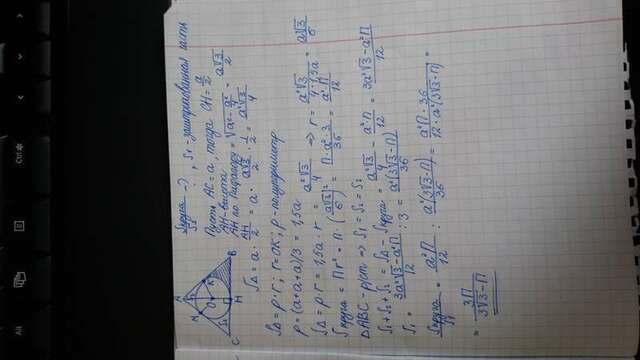 Alt
Ctrl
A
S₂
N
O
K
S₁
S₃
C
H
B
Sкруга/S₁ - ?, S₁ - заштрихованная часть
Пусть AC = a, тогда CH = a/2
AH - высота
AH по Пифагору = √(a² - a²/4) = a√3/2
S△ = a · AH/2 = a · a√3/2 · 1/2 = a²√3/4
S△ = p · r ; r = OK ; p - полупериметр
p = (a+a+a)/3 = 1,5a
S△ = p · r = 1,5a · r = a²√3/4 ⇒ r = a²√3/(4 · 1,5a) = a√3/6
Sкруга = Пr² = П · (a√3/6)² = П · a² · 3/36 = a² · П/12
△ABC - р/ст ⇒ S₁ = S₂ = S₃
S₁ + S₂ + S₃ = S△ - Sкруга = a²√3/4 - a²П/12 = (3a²√3 - a²П)/12
S₁ = (3a²√3 - a²П)/12 : 3 = a²(3√3 - П)/36
Sкруга/S₁ = a²П/12 : a²(3√3 - П)/36 = a²П · 36/(12 · a²(3√3 - П)) =
= 3П/(3√3 - П)